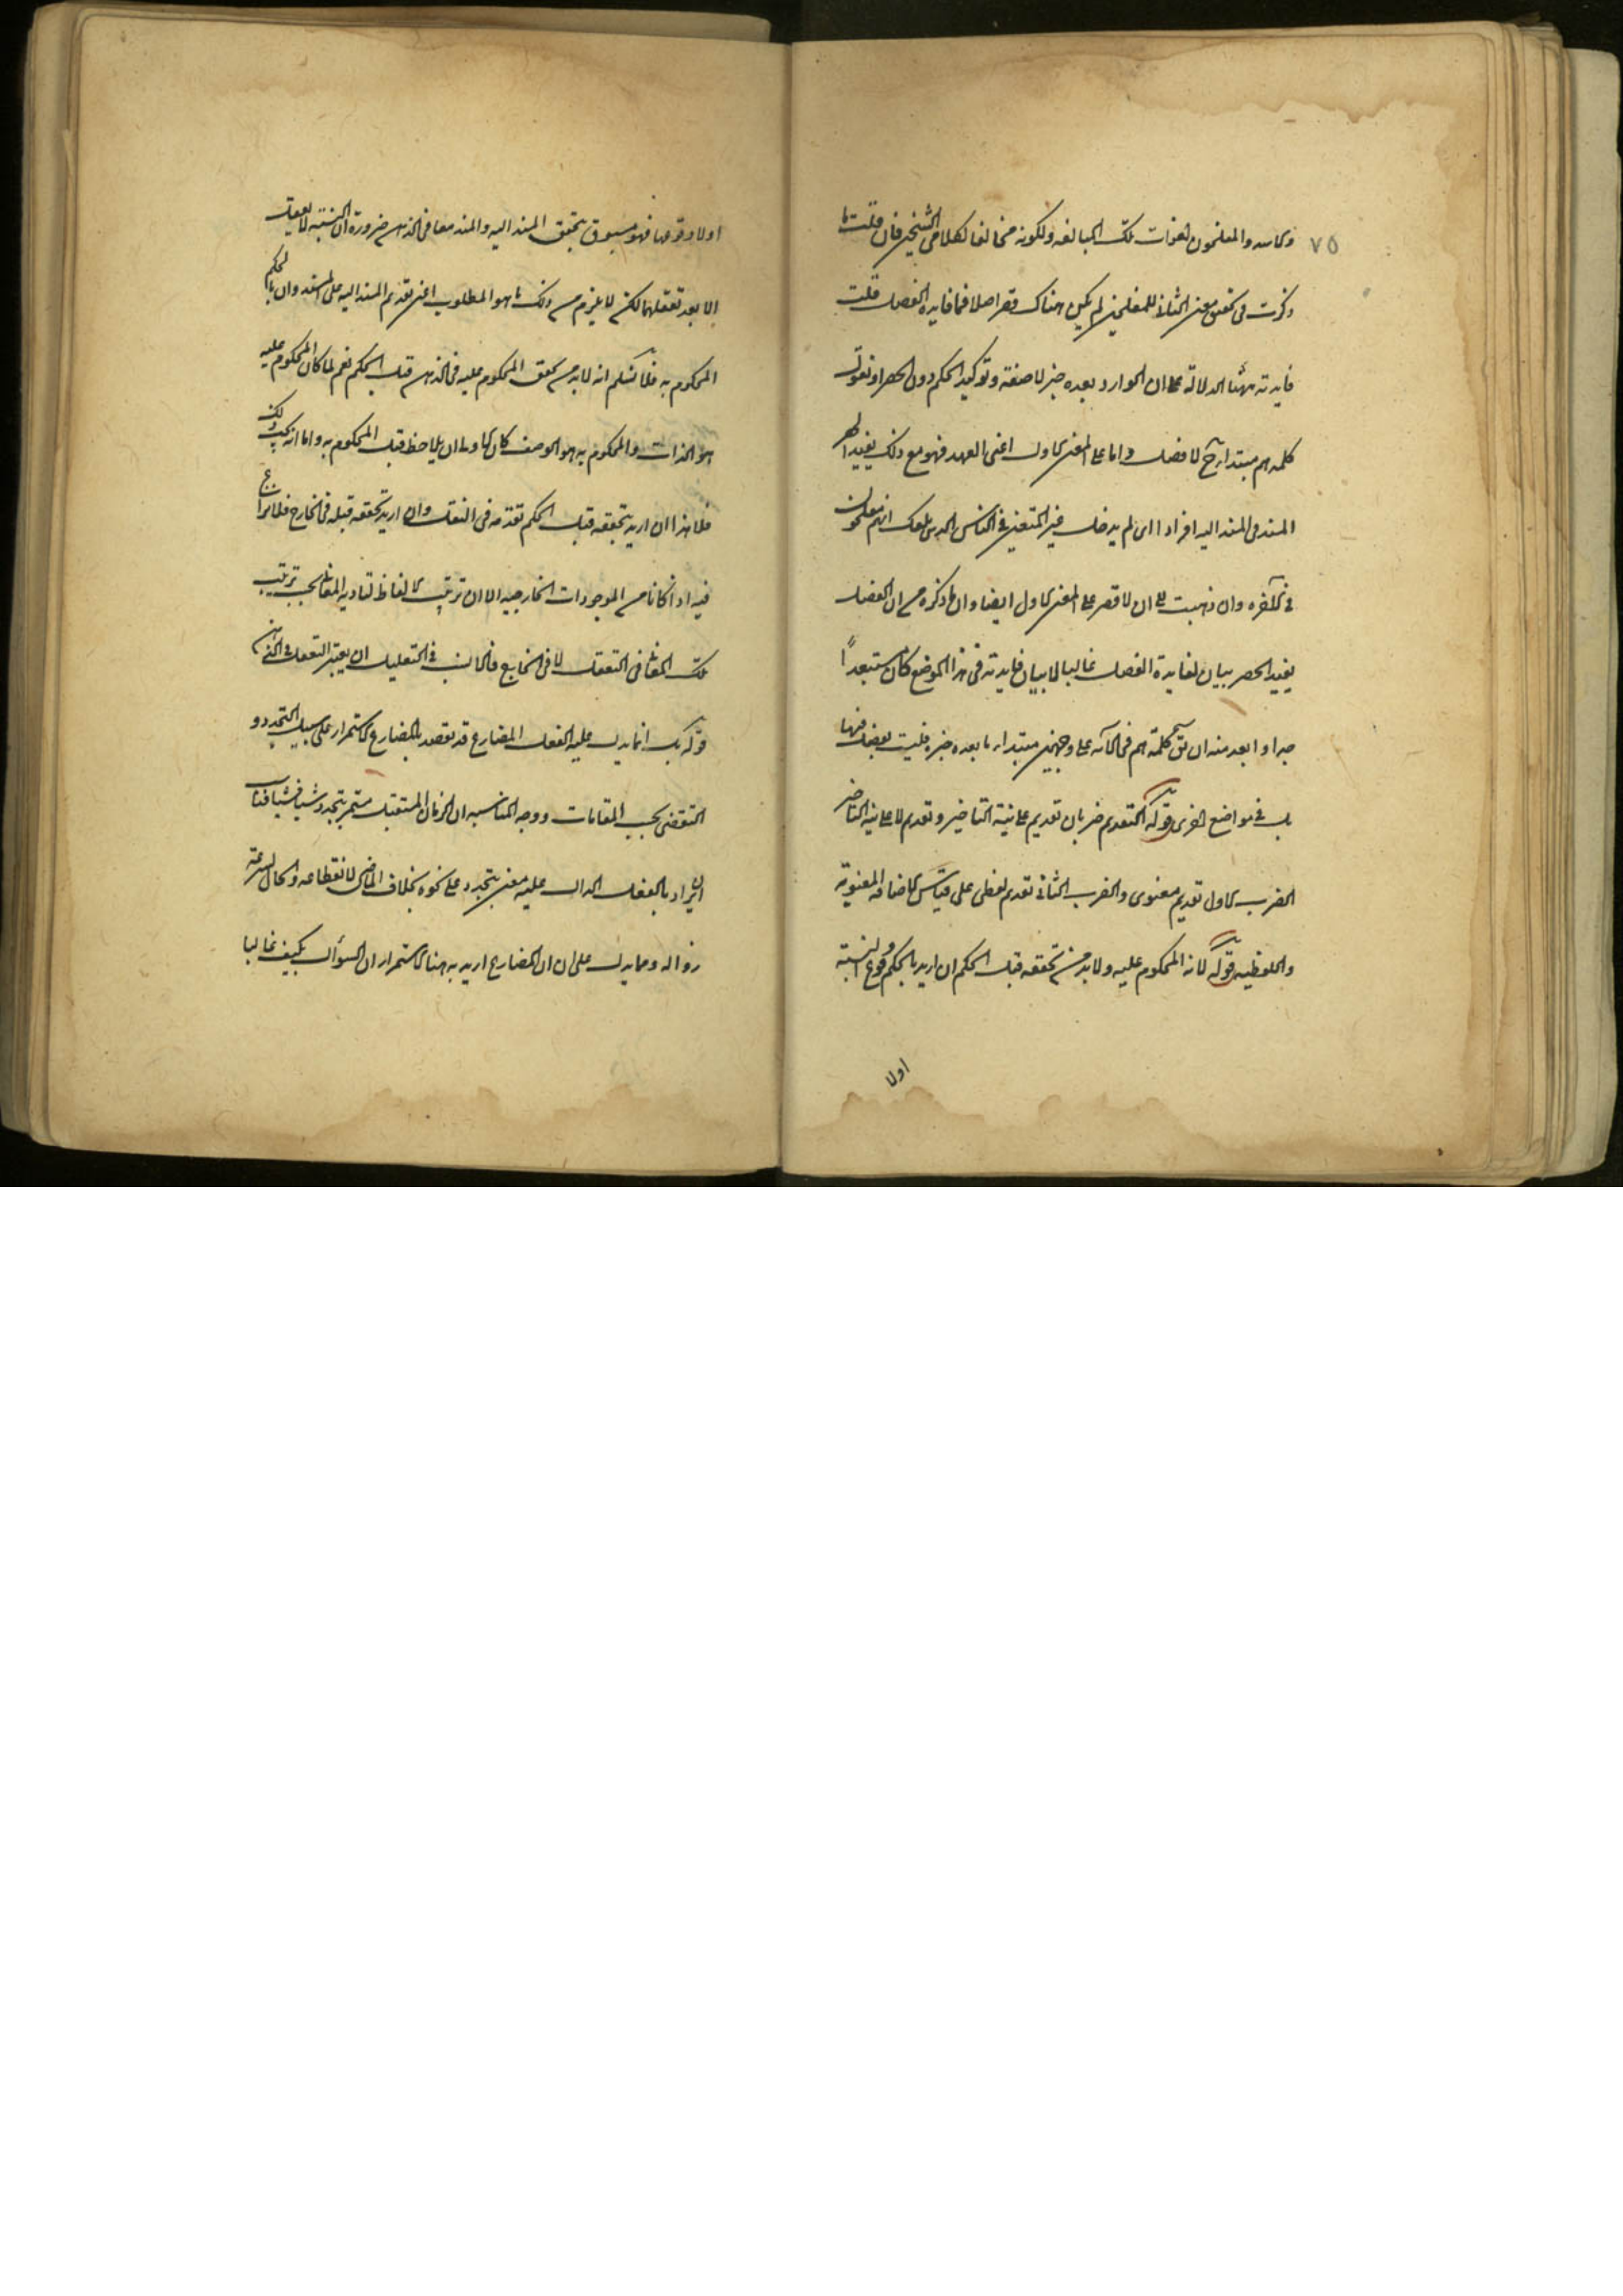 ٧٥
والمفلحون لفوات تلك المبالغه ولكونه مخالفا لكلامى الشيخين فان قلت ما
ذكرت فى تحقيق معنى الثانى للمفلحين لم يكن هناك قصر اصلا فما فايده الفصل قلت
فايدته ههنا الدلالة على ان الوارد بعده خبر لا صفة وتوكيد الحكم دون الحصر او نقول
كلمه هم مبتدا لا فصل واما على المعنى الاول اعنى العهد فهو مع ذلك يفيد
المسند فى المسند اليه افرادا اى لم يدخل غير المتقين فى الناس الذين بلغك انهم مفلحون
فى الآخره وان ذهبت الى ان لا قصر على المعنى الاول ايضا وان ما ذكره من ان الفصل
يفيد الحصر بيان لفايدة الفصل غالبا لا بيان فايدته فى هذا الموضع كان مستبعدا
جدا وابعد منه ان كلمة هم فى الآيه على وجهين مبتدا وما بعده خبره فليست بفصل فيها
بل فى مواضع اخرى قوله التقديم ضربان تقديم على نية التاخير وتقديم لا على نية التاخير
الضرب الاول تقديم معنوى والضرب الثانى تقديم لفظى على قياس الاضافه المعنوية
واللفظيه قوله لانه المحكوم عليه ولابد من تحققه قبل الحكم ان اريد بالحكم وقوع النسبة
اولا
اولا وقوعها فهو مسبوق بتحقق المسند اليه والمسند معا فى الذهن ضرورة ان النسبه لا تعقل
الا بعد تعقلهما لكن لا يلزم من ذلك ما هو المطلوب اعنى تقديم المسند اليه على المسند وان الحكم
المحكوم به فلا نسلم انه لابد من تحقق المحكوم عليه فى الذهن قبل الحكم نعم لما كان المحكوم عليه
هو الذات والمحكوم به هو الوصف كان الاولى ان يلاحظ قبل المحكوم به واما انه يجب ذلك
فلا هذا ان اريد بتحققه قبل الحكم تقدمه فى التعقل وان اريد تحققه قبله فى الخارج فلا نزاع
فيه اذا كانا من الموجودات الخارجيه الا ان ترتيب الالفاظ لتاديه المعانى بحسب ترتيب
تلك المعانى فى التعقل لا فى الخارج فالمناسب فى التعليل ان يعتبر التعقل فى الذهن
قوله بل انما يدل عليه الفعل المضارع قد يقصد بالمضارع الاستمرار على سبيل التجدد و
التقضى بحسب المقامات ووجه المناسبه ان الزمان المستقبل مستمر يتجدد شيئا فشيئا فناسب
ان يراد بالفعل الدال عليه معنى يتجدد على نحوه بخلاف الماضى لانقطاعه والحال لسرعة
زواله ومما يدل على ان المضارع اريد به هنا الاستمرار ان السؤال بكيف غالبا